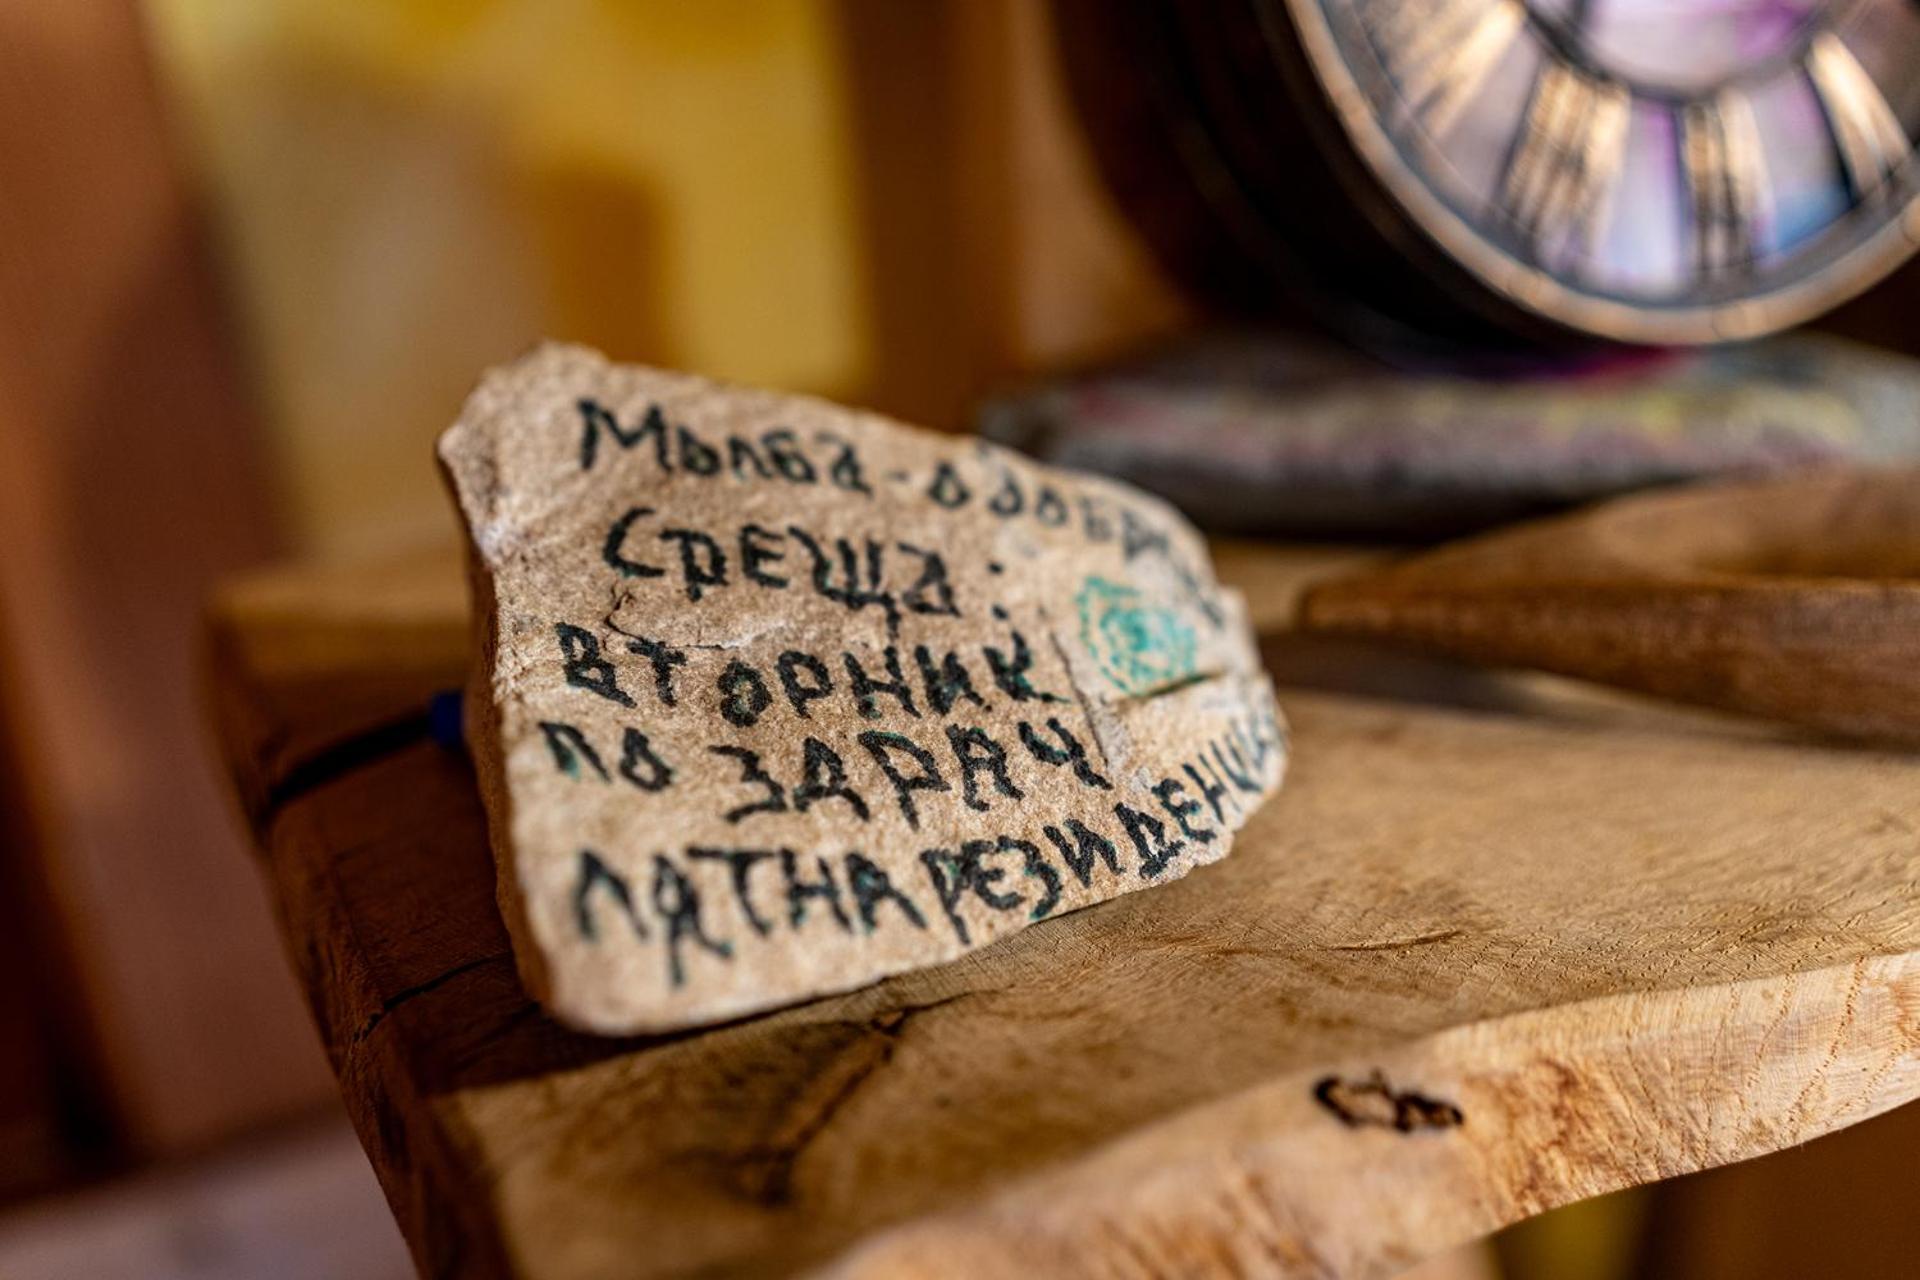 Молба -
СРЕЩА :
ВТОРНИК
ПО ЗДРАЧ
ЛЯТНА РЕЗИДЕНЦИЯ